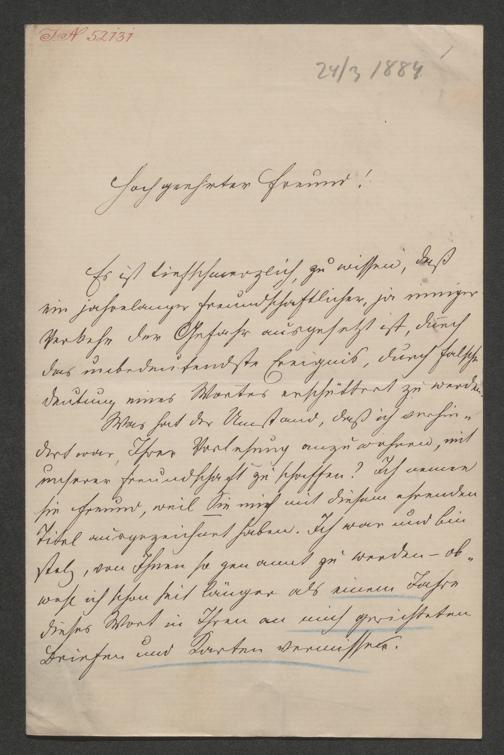 I.N 52131
24/3 1884
Hochgeehrter Freund!
Es ist tiefschmerzlich, zu wissen, daß
ein jahrelanger freundschaftlicher, ja inniger
Verkehr der Gefahr ausgesetzt ist, durch
das unbedeutendste Ereignis, durch falsche
Deutung eines Wortes erschüttert zu werden.
Was hat der Umstand, daß ich verhin-
dert war, Ihrer Vorlesung anzuwohnen, mit
unserer Freundschaft zu schaffen? Ich nenne
Sie Freund, weil Sie mich mit diesem ehrenden
Titel ausgezeichnet haben. Ich war und bin
stolz, von Ihnen so genannt zu werden – ob-
wohl ich schon seit länger als einem Jahre
dieses Wort in Ihren an mich gerichteten
Briefen und Karten vermisse.